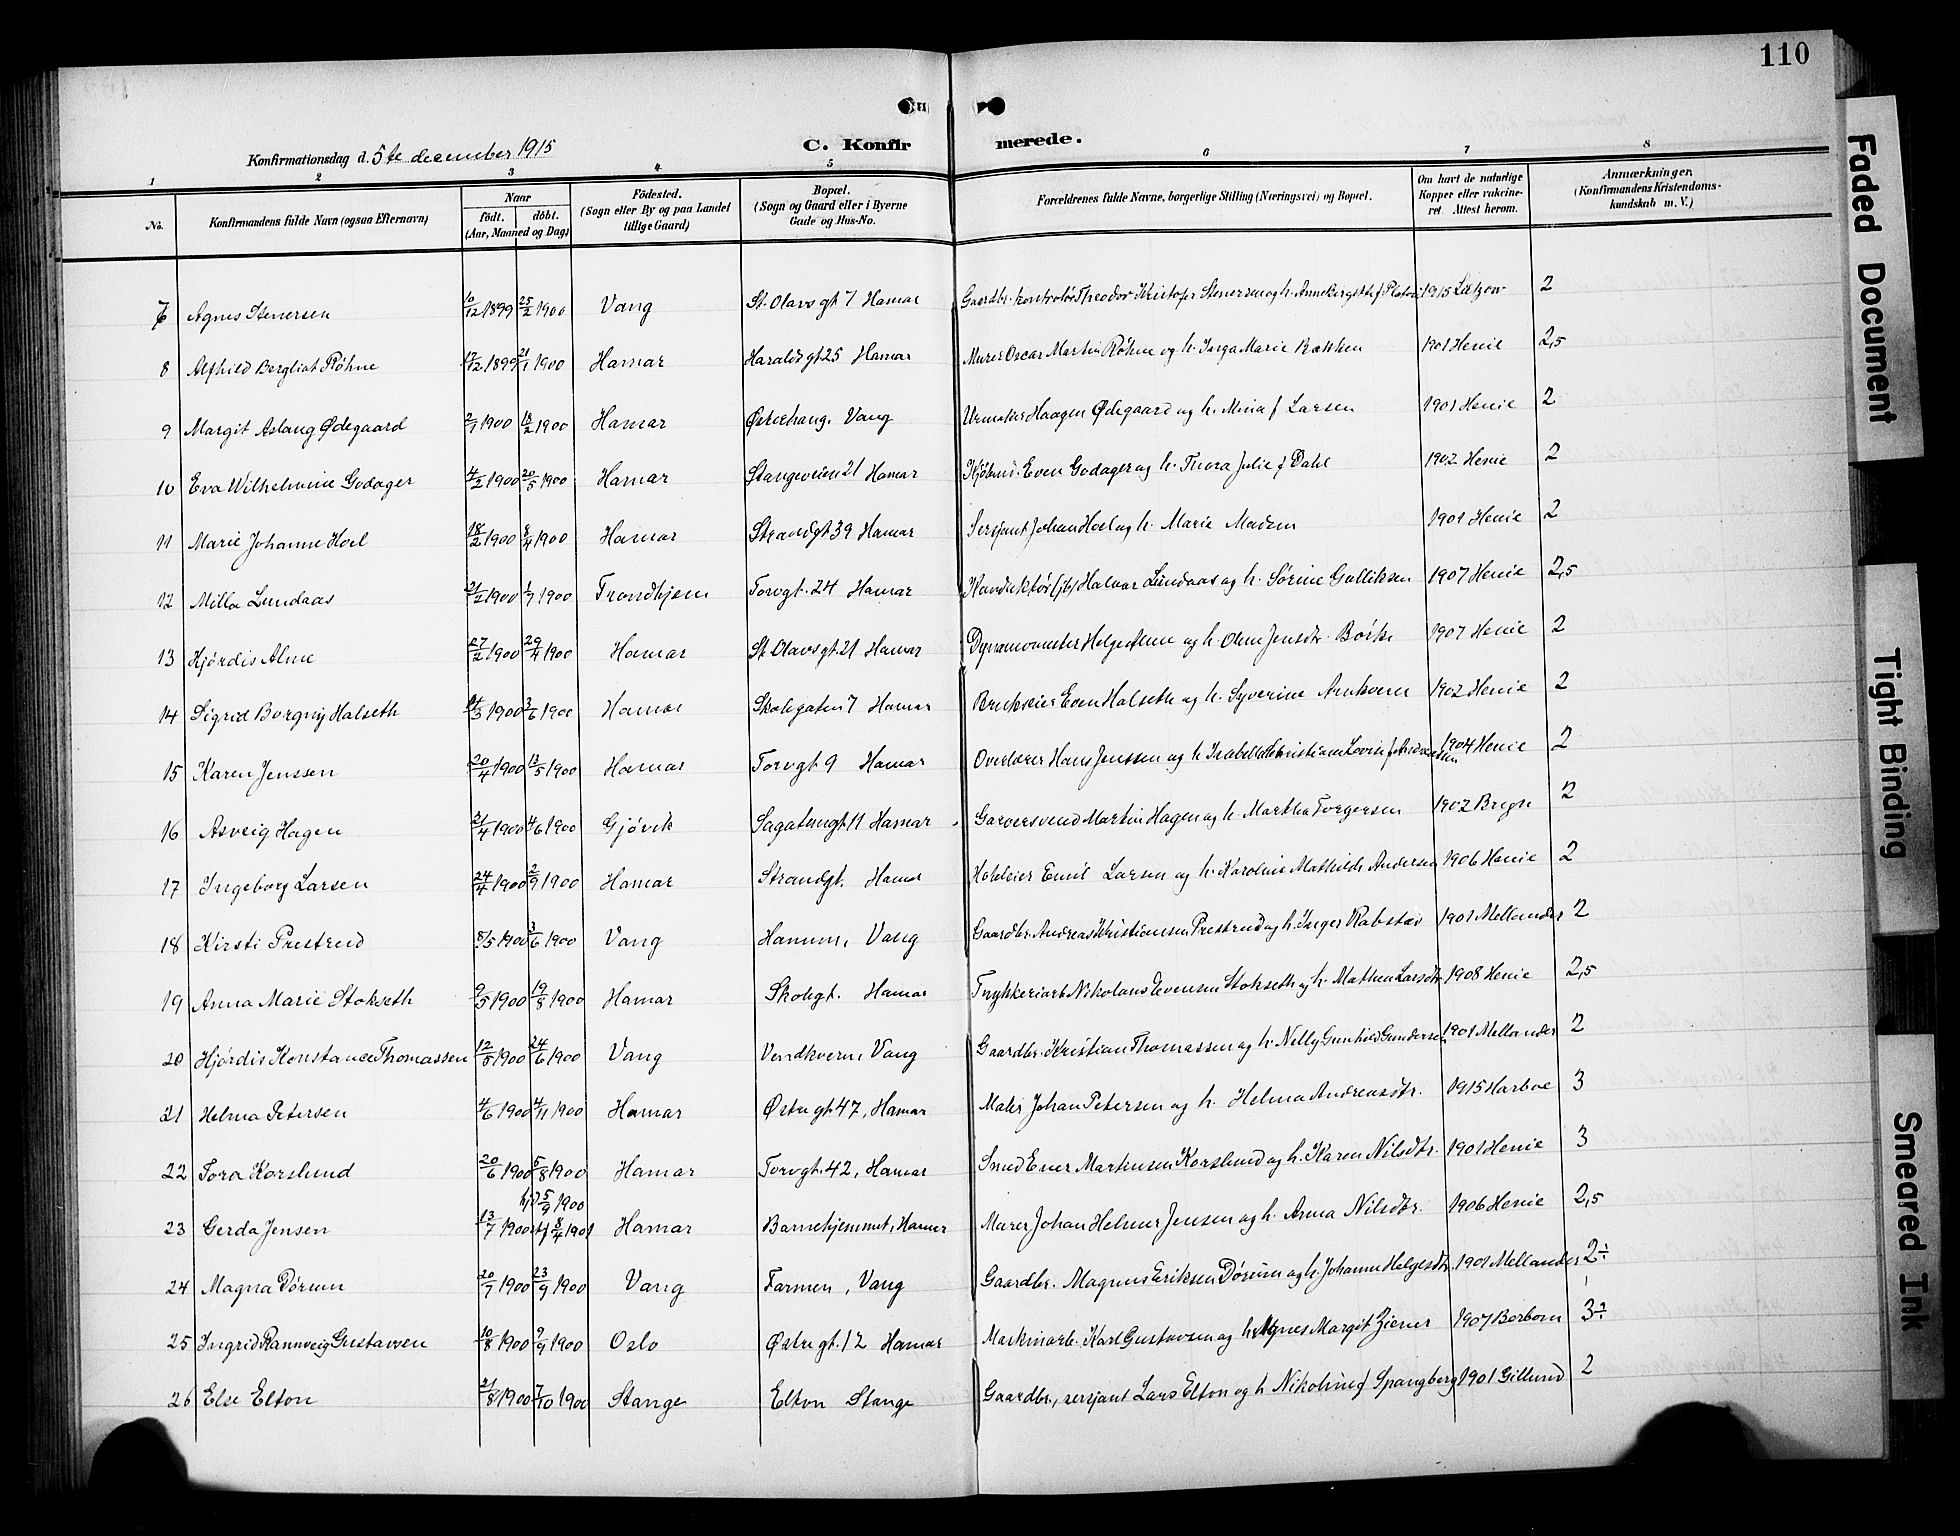 110
C. Konfirmerede.
Konfirmationsdag d. 5te december 1915
1 2 3 4 5 6 7 8
No. Konfirmandens fulde Navn (ogsaa Efternavn) Naar født. døbt. (Aar, Maaned og Dag) Fødested. (Sogn eller By og paa Landet tillige Gaard) Bopæl. (Sogn og Gaard eller i Byerne Gade og Hus-No. Forældrenes fulde Navne, borgerlige Stilling (Næringsvei) og Bopæl. Om havt de naturlige Kopper eller vakcineret. Attest herom. Anmærkninger, (Konfirmandens Kristendomskundskab m. V.)
7 Agnes Stenersen 10/12 1899 25/2 1900 Vang St. Olavs gt 7 Hamar Gaardbr. kontrolør Theodor Kristofer Stenersen og h. 1915 2
8 Alfhild Bergliot Røhne 17/12 1899 21/1 1900 Hamar Haralds gt 25 Hamar Murer Oscar Martin Røhne og h. Inga Marie Bækken 1901 Henie 2,5
9 Margit Aslaug Ødegaard 2/1 1900 18/2 1900 Hamar Østrehaug, Vang Urmaker Haagen Ødegaard og h. Mina f Larsen 1901 Henie 2
10 Eva Wilhelmine Godager 4/2 1900 20/5 1900 Hamar Stangeveien 21 Hamar Kjøbmd. Even Godager og h. Thora Julie f Dahl 1902 Henie 2
11 Marie Johanne Hoel 18/2 1900 8/4 1900 Hamar Strandgt 39 Hamar Sersjant Johan Hoel og h. Marie Madsen 1901 Henie 2
12 Milla Lundaas 21/2 1900 1/7 1900 Trondhjem Torvgt. 24 Hamar Konduktør (jb) Halvar Lundaas og h. Sørine Gulliksen 1907 Henie 2,5
13 Hjørdis Alme 27/2 1900 29/4 1900 Hamar St. Olavs gt. 21 Hamar Dynamomester Helge Alme og h. Oline Jensdtr. Børke 1907 Henie 2
14 Sigrid Borgny Halseth 14/3 1900 3/6 1900 Hamar Skolegaten 7 Hamar Brukseier Even Halseth og h. Syverine Arnkværn 1902 Henie 2
15 Karen Jenssen 20/4 1900 13/5 1900 Hamar Torvgt 9 Hamar Overlærer Hans Jenssen og h. Isabella Christiane Lovise f. Andreassen 1904 Henie 2
16 Asveig Hagen 21/4 1900 4/6 1900 Gjøvik Sagatungt 11 Hamar Garversvend Martin Hagen og h. Martha Torgersen 1902 2
17 Ingeborg Larsen 24/4 1900 2/9 1900 Hamar Strandgt. Hamar Hoteleier Emil Larsen og h. Karoline Mathilde Andersen 1906 Henie 2
18 Kirsti Prestrud 8/5 1900 3/6 1900 Vang Hamum, Vang Gaardbr. Andreas Kristiansen Prestrud og h. Inger Rabstad 1901 Mellander 2
19 Anna Marie Stokseth 9/5 1900 19/8 1900 Hamar Skolegt. Hamar Trykkeriarb. Nikolaus Evensen Stokseth og h. Mathea Larsdtr. 1908 Henie 2,5
20 Hjørdis Konstance Thomassen 12/5 1900 24/6 1900 Vang Vendkvern, Vang Gaardbr. Kristian Thomassen og h. Nelly Gunhild Gundersen 1901 Mellander 2
21 Helma Petersen 4/6 1900 4/11 1900 Hamar Østregt 47, Hamar Maler Johan Petersen og h. Helma Andreasdtr. 1915 Harboe 3
22 Tora Korslund 20/6 1900 5/8 1900 Hamar Torvgt. 42, Hamar Smed Ener Martinsen Korslund og h. Karen Nilsdtr. 1901 Henie 3
23 Gerda Jensen 13/7 1900 hjd 5/9 1900 stf 8/4 1901 Hamar Barnehjemmet, Hamar Murer Johan Helmer Jensen og h. Anna Nilsdtr. 1906 Henie 2,5
24 Magna Dørum 20/7 1900 23/9 1900 Vang Farmen, Vang Gaardbr. Magnus Eriksen Dørum og h. Johanne Helgesdtr. 1901 Mellander 2÷
25 Ingrid Rannveig Gustavsen 10/8 1900 9/9 1900 Oslo Østregt. 12 Hamar Maskinarb. Karl Gustavsen og h. Agnes Margit Ziener 1907 3÷
26 Else Elton 21/8 1900 7/10 1900 Stange Elton Stange Gaardbr., sersjant Lars Elton og h. Nikoline f Spangberg 1901 Gillund 2
Faded Document
Tight Binding
Smeared Ink